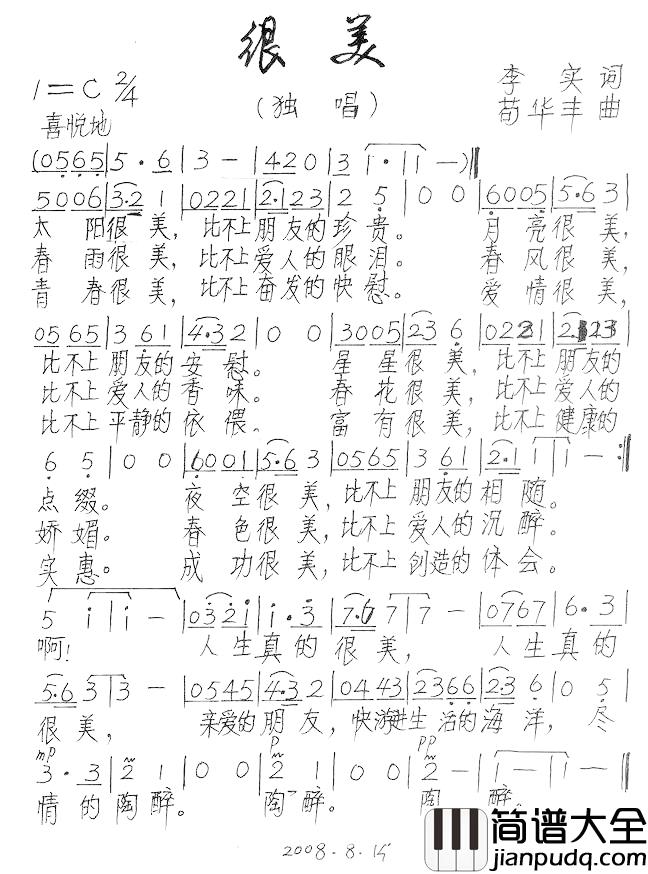 很美
1=C 2/4
(独唱)
李实词
荀华丰曲
喜悦地
(0565|5·6|3-|420|3 1·|11-)‖
5006|3·21|0221|2·123|2 5|0 0|6005|5·63|
太阳很美，比不上朋友的珍贵。月亮很美，
春雨很美，比不上爱人的眼泪。春风很美，
青春很美，比不上奋发的快慰。爱情很美，
0565|361|4·32|0 0|3005|236|0221|2·123|
比不上朋友的安慰。星星很美，比不上朋友的
比不上爱人的香味。春花很美，比不上爱人的
比不上平静的依偎。富有很美，比不上健康的
6 5|0 0|6001|5·63|0565|361|2·11|1-:‖
点缀。夜空很美，比不上朋友的相随。
娇媚。春色很美，比不上爱人的沉醉。
实惠。成功很美，比不上创造的体会。
5 i|i-|032i|i·3|7·67|7-|0767|6·3|
啊！人生真的很美，人生真的
5·63|3-|0545|4·32|0443|2366|2·36|0 5|
很美，亲爱的朋友，快游进生活的海洋，尽
mp p pp
3·3|2 1|0 0|2 1|0 0|2-|1-|1-‖
情的陶醉。陶醉。陶醉。
2008.8.15
简谱大全
jianpudq.com